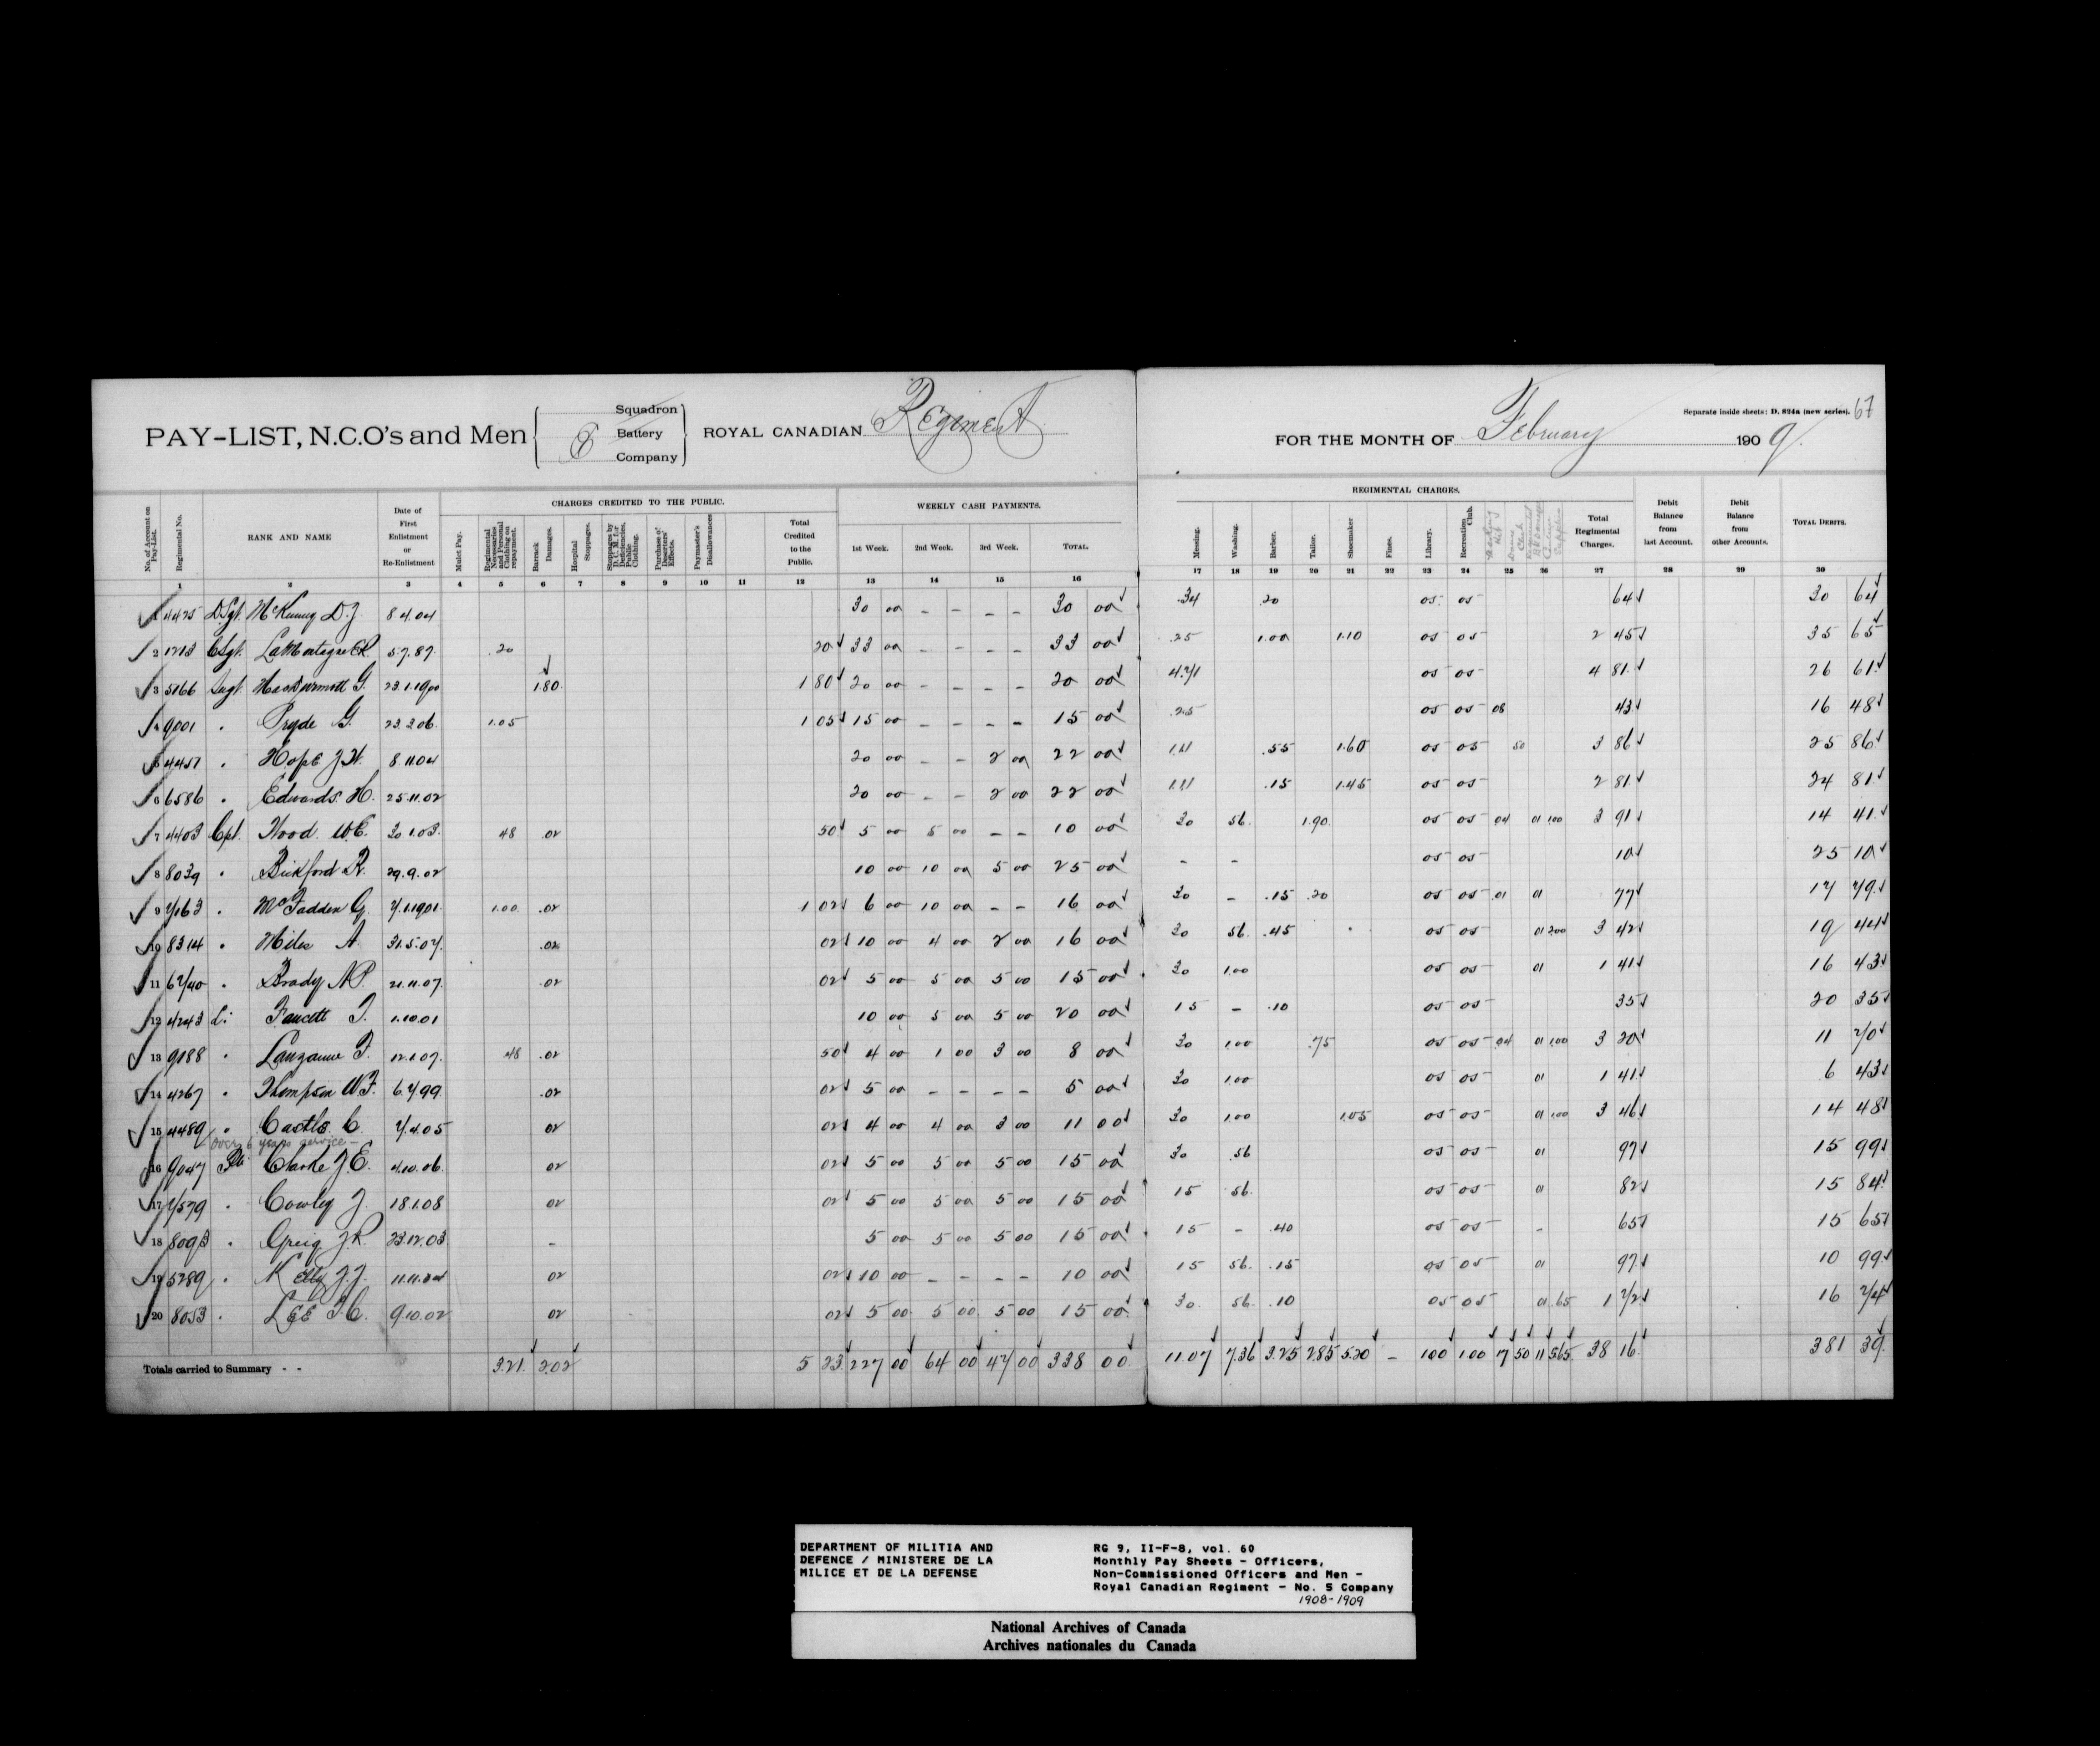 Separate inside sheets; D. 824a (new series). 67
PAY-LIST, N.C.O's and Men Squadron Battery Company ROYAL CANADIAN Regiment FOR THE MONTH OF February 1909.
No. of Account on Pay-List. Regimental No. RANK AND NAME Date of First Enlistment or Re-Enlistment CHARGES CREDITED TO THE PUBLIC. WEEKLY CASH PAYMENTS. REGIMENTAL CHARGES. Debit Balance from last Account. Debit Balance from other Accounts. TOTAL DEBITS.
Mulct Pay. Regimental Necessaries and Personal Clothing on repayment. Barrack Damages. Hospital Stoppages. Stoppages by D. C. M. for Deficiencies, Public Clothing. Purchase of Deserters' Effects. Paymaster's Disallowances Total Credited to the Public. 1st Week. 2nd Week. 3rd Week. TOTAL. Messing. Washing. Barber. Tailor. Shoemaker Fines. Library. Recreation Club. Total Regimental Charges.
1 2 3 4 5 6 7 8 9 10 11 12 13 14 15 16 17 18 19 20 21 22 23 24 25 26 27 28 29 30
1 4425 D.Sgt. 8.4.04 30 00 - - - - 30 00 .34 .20 05 05 64 30 64
2 1213 C.Sgt. 5.7.87. .20 20 33 00 - - - - 33 00 .25 1.00 1.10 05 05 2 45 35 65
3 5166 Sergt. G. 23.1.1900 1.80 1 80 20 00 - - - - 20 00 4.71 05 05 4 81 26 61
4 9001 " Pryde G. 23.3.06. 1.05 1 05 15 00 - - - - 15 00 .25 05 05 08 43 16 48
5 4457 " Hope J.H. 8.11.04 20 00 - - 2 00 22 00 1.11 .55 1.60 05 05 50 3 86 25 86
6 6586 " Edwards. H. 25.11.02 20 00 - - 2 00 22 00 1.11 .15 1.45 05 05 2 81 24 81
7 4403 Cpl. W.E. 30.1.03. 48 .02 50 5 00 5 00 - - 10 00 30 56 1.90 05 05 04 01 1.00 3 91 14 41
8 8039 " Bickford R. 29.9.02 10 00 10 00 5 00 25 00 - - 05 05 10 25 10
9 7163 " McFadden G. 7.1.1901. 1.00 .02 1 02 6 00 10 00 - - 16 00 30 - .15 .20 05 05 .01 01 77 17 79
10 8314 " Miles A. 31.5.07. .02 02 10 00 4 00 2 00 16 00 30 56 .45 05 05 01 2.00 3 42 19 44
11 6740 " Brady A.P. 21.11.07. .02 02 5 00 5 00 5 00 15 00 30 1.00 05 05 01 1 41 16 43
12 4243 L: Faucett T. 1.10.01 10 00 5 00 5 00 20 00 15 - .10 05 05 35 20 35
13 9188 " Lauzanne F. 12.1.07. .48 .02 50 4 00 1 00 3 00 8 00 30 1.00 .75 05 05 .04 01 1.00 3 20 11 70
14 4267 " Thompson W.F. 6.7.99. .02 02 5 00 - - - - 5 00 30 1.00 05 05 01 1 41 6 43
15 4489 " Castle. C. 7.4.05 02 02 4 00 4 00 3 00 11 00 30 1.00 1.05 05 05 01 1.00 3 46 14 48
over 6 years service -
16 9047 Pte. Clarke J.E. 4.10.06. 02 02 5 00 5 00 5 00 15 00 30 .56 05 05 01 97 15 99
17 7579 " Cowley J. 18.1.08 02 02 5 00 5 00 5 00 15 00 15 56. 05 05 01 82 15 84
18 8093 " Greig J.R. 23.12.03 - 5 00 5 00 5 00 15 00 15 - .40 05 05 - 65 15 65
19 5289 " Kelly J.J. 11.11.04 02 02 10 00 - - - - 10 00 15 56. .15 05 05 01 97 10 99
20 8053 " LEE F.C. 9.10.02 02 02 5 00 5 00 5 00 15 00 30 56. .10 05 05 01 .65 1 72 16 74
Totals carried to Summary - - 3.21. 2.02 5 23 227 00 64 00 47 00 338 00 11.07 7.36 3.25 2.85 5.20 - 1.00 1.00 17 50 11 5.65 38 16 381 39.
DEPARTMENT OF MILITIA AND
DEFENCE / MINISTERE DE LA
MILICE ET DE LA DEFENSE
RG 9, II-F-8, vol. 60
Monthly Pay Sheets - Officers,
Non-Commissioned Officers and Men -
Royal Canadian Regiment - No. 5 Company
1908-1909
National Archives of Canada
Archives nationales du Canada